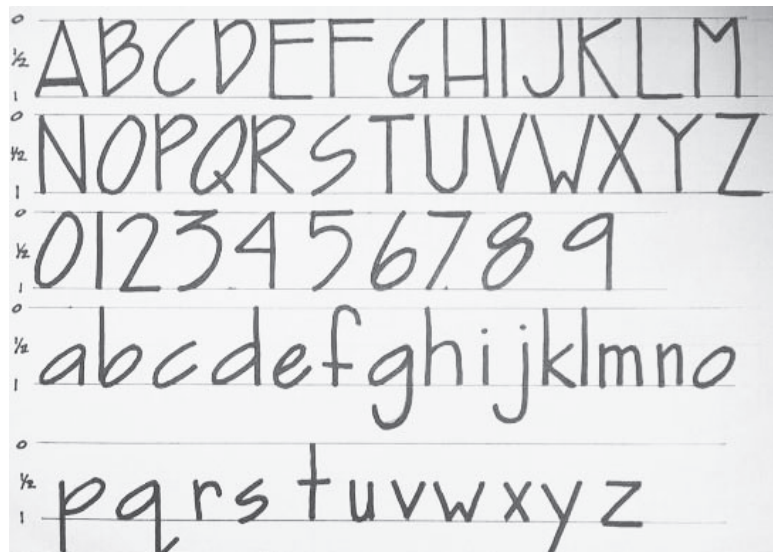 0 ½ 1 ABCDEFGHIJKLM
0 ½ 1 NOPQRSTUVWXYZ
0 ½ 1 0123456789
0 ½ 1 abcdefghijklmno
0 ½ 1 pqrstuvwxyz